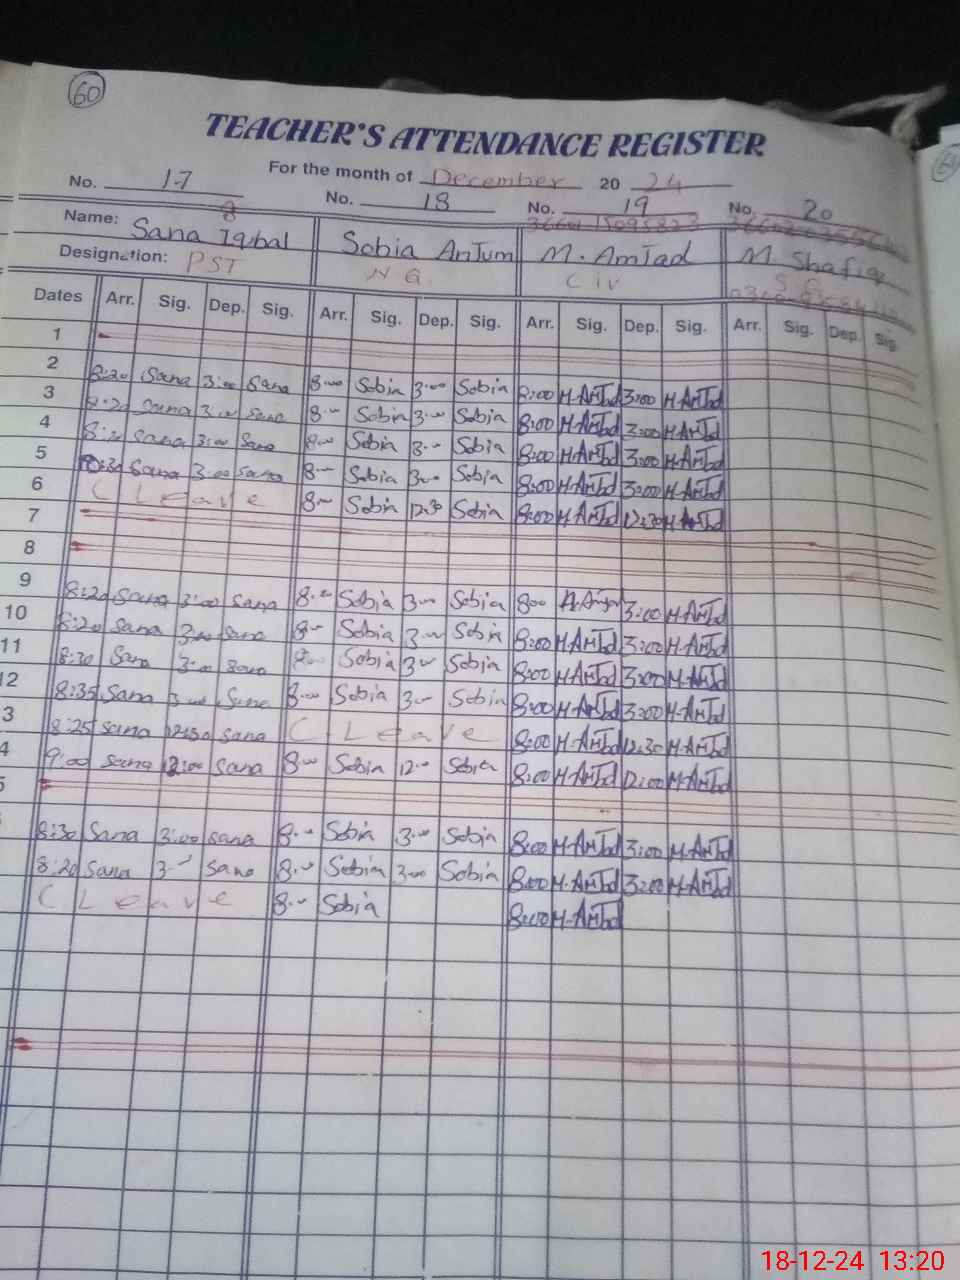 60
TEACHER'S ATTENDANCE REGISTER
For the month of December 20 24
No. 17 No. 18 No. 19 No. 20
Name: Sana Iqbal Sobia Anjum M. Amjad M. Shafiq
Designation: PST N G C IV
Dates Arr. Sig. Dep. Sig. Arr. Sig. Dep. Sig. Arr. Sig. Dep. Sig. Arr. Sig. Dep. Sig.
1
2 8:20 Sana 3:00 Sana 8:00 Sobia 3:00 Sobia 8:00 M.Amjad 3:00 M.Amjad
3 8:20 Sana 3:00 Sana 8:00 Sobia 3:00 Sobia 8:00 M.Amjad 3:00 M.Amjad
4 8:20 Sana 3:00 Sana 8:00 Sobia 3:00 Sobia 8:00 M.Amjad 3:00 M.Amjad
5 Sana 3:00 Sana 8:00 Sobia 3:00 Sobia 8:00 M.Amjad 3:00 M.Amjad
6 C Leave 8:00 Sobia 12:30 Sobia 8:00 M.Amjad 12:30 M.Amjad
7
8
9 8:20 Sana 3:00 Sana 8:00 Sobia 3:00 Sobia 8:00 M.Amjad 3:00 M.Amjad
10 8:20 Sana 3:00 Sana 8:00 Sobia 3:00 Sobia 8:00 M.Amjad 3:00 M.Amjad
11 8:30 Sana 3:00 Sana 8:00 Sobia 3:00 Sobia 8:00 M.Amjad 3:00 M.Amjad
12 8:35 Sana 3:00 Sana 8:00 Sobia 3:00 Sobia 8:00 M.Amjad 3:00 M.Amjad
3 8:25 Sana 12:30 Sana C Leave 8:00 M.Amjad 12:30 M.Amjad
4 9:00 Sana 12:00 Sana 8:00 Sobia 12:00 Sobia 8:00 M.Amjad 12:00 M.Amjad
5
8:30 Sana 3:00 Sana 8:00 Sobia 3:00 Sobia 8:00 M.Amjad 3:00 M.Amjad
8:20 Sana 3:00 Sana 8:00 Sobia 3:00 Sobia 8:00 M.Amjad 3:00 M.Amjad
C Leave 8:00 Sobia 8:00 M.Amjad
18-12-24 13:20